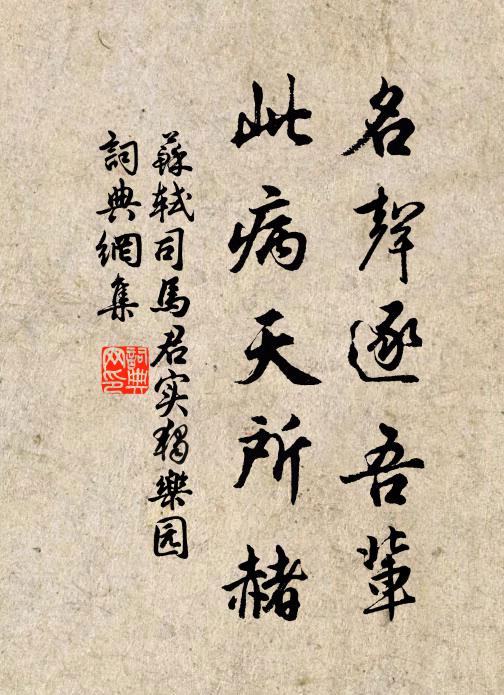 名聲逐吾輩
此病天所赭
蘇軾司馬君实獨樂园
詞典網集
詞典网印